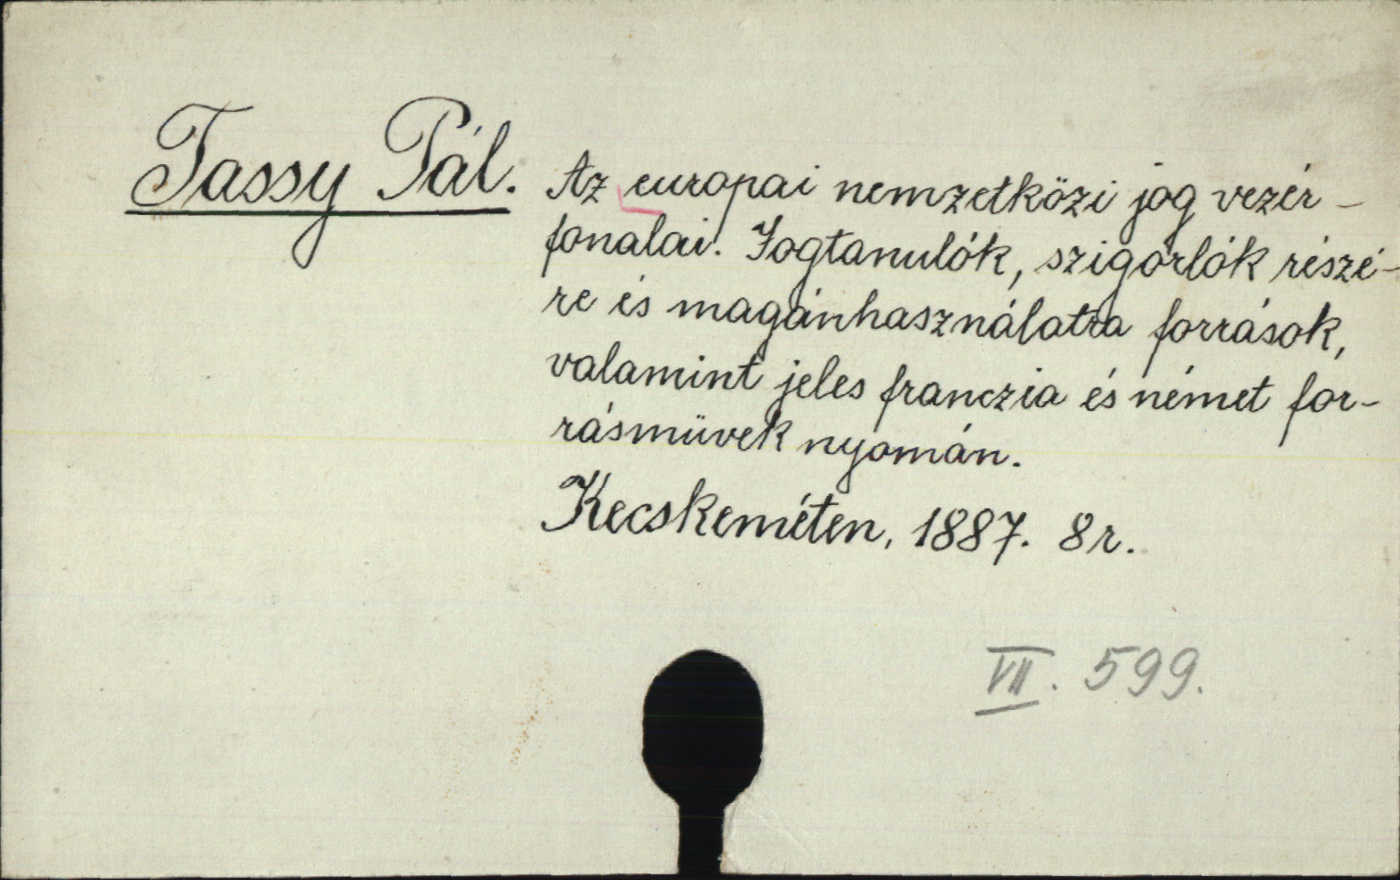 Tassy Pál.
Az europai nemzetközi jog vezér-
fonalai. Jogtanulók, szigorlók részé-
re és magánhasználatra források,
valamint jeles franczia és német for-
rásmüvek nyomán.
Kecskeméten, 1887. 8r.
VII. 599.